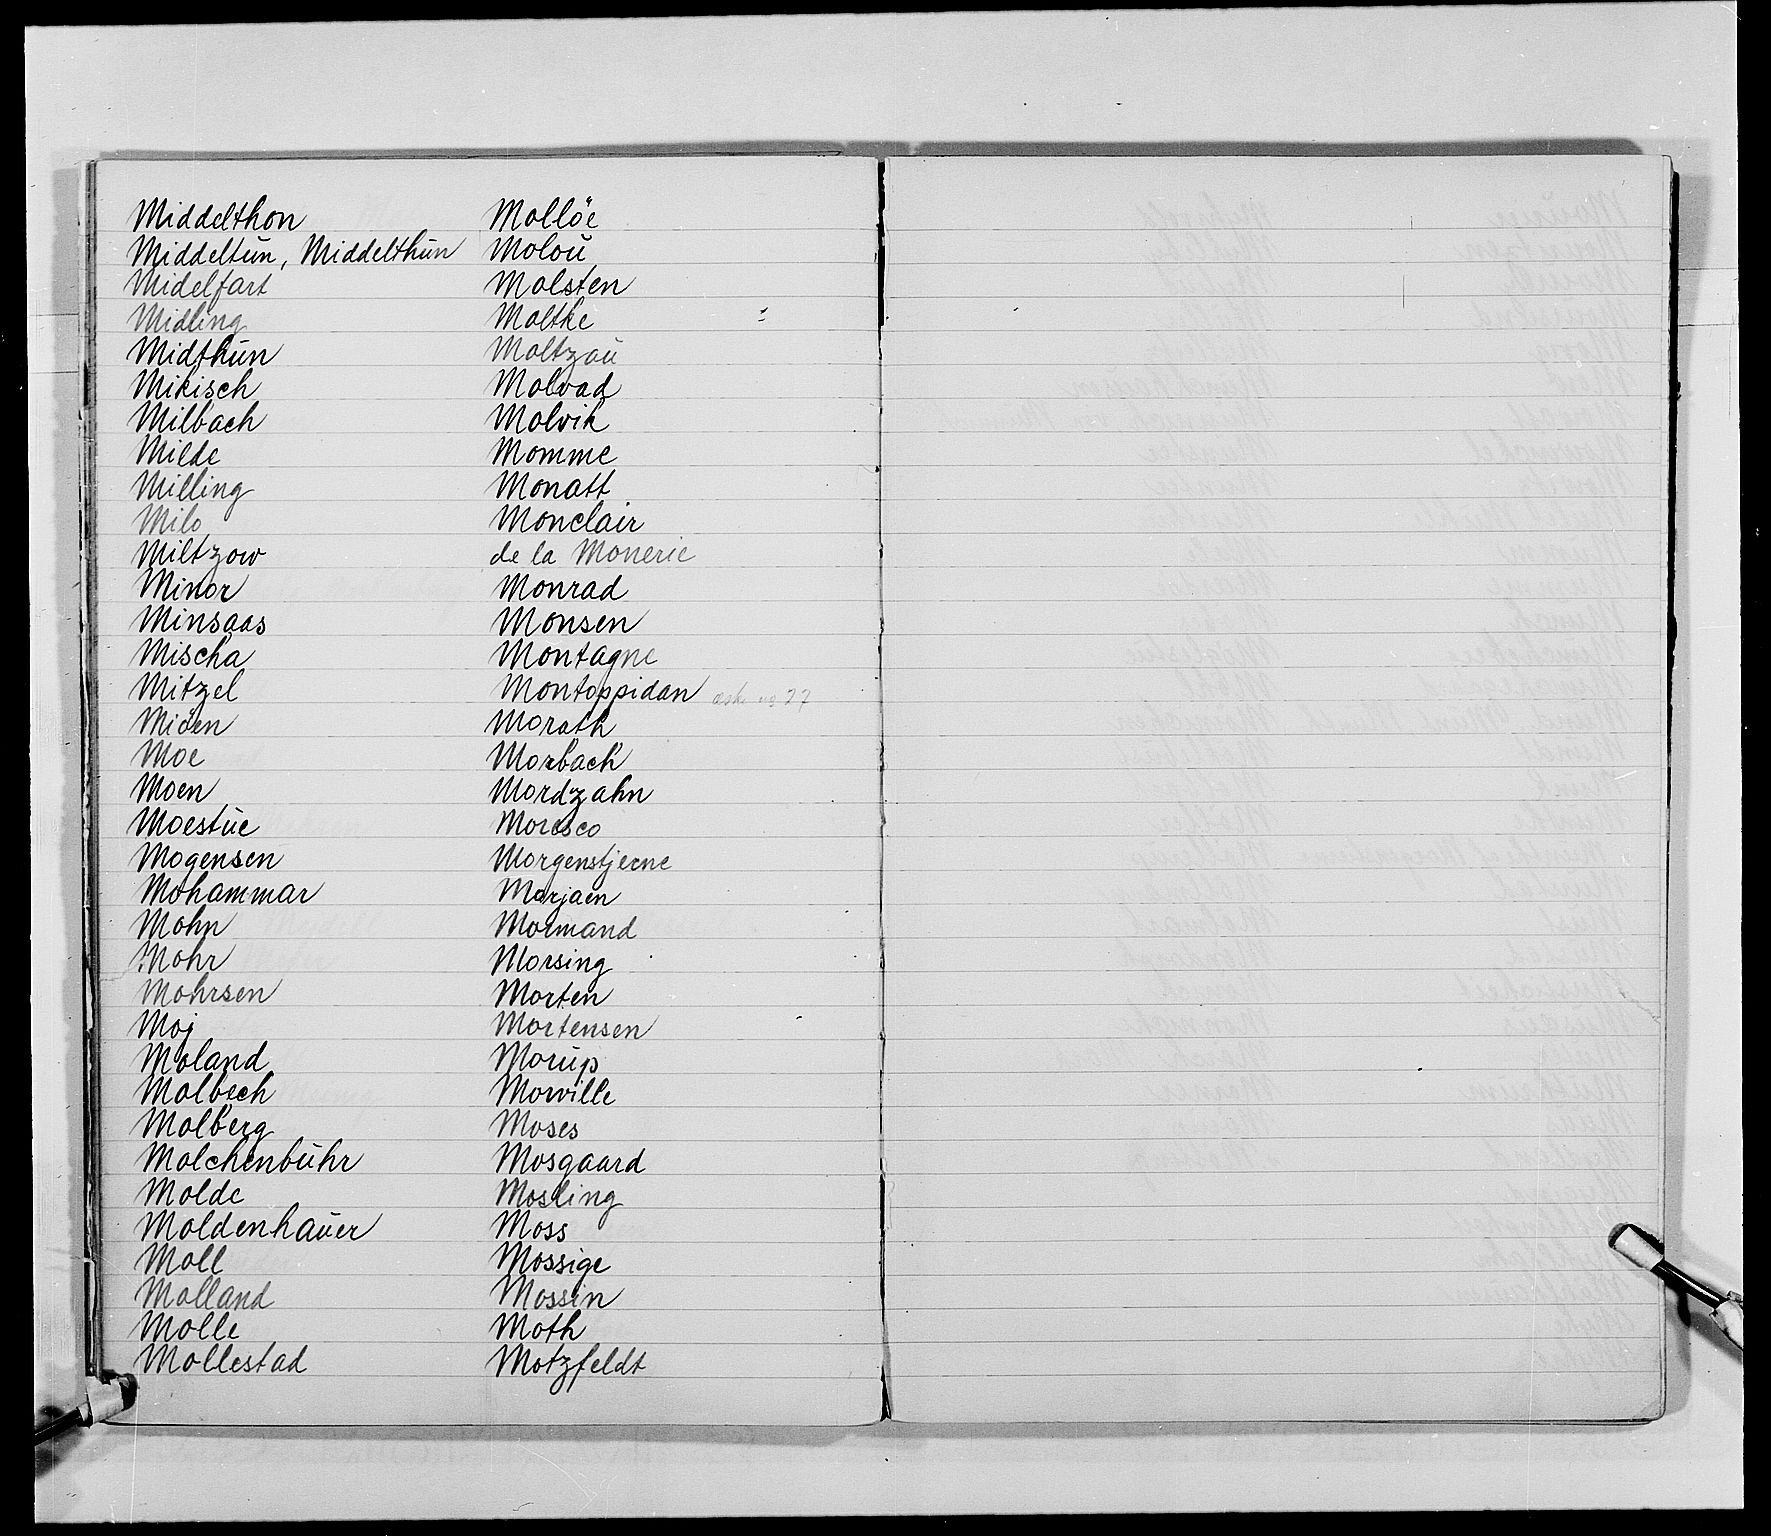 Middelthon
Middeltun, Middelthun
Midelfart
Midling
Midthun
Mikisch
Milbach
Milde
Milling
Milo
Miltzow
Minor
Minsaas
Mischa
Mitzel
Mioen
Moe
Moen
Moestue
Mogensen
Mohammar
Mohn
Mohr
Mohrsen
Moj
Moland
Molbech
Molberg
Molchenbuhr
Molde
Moldenhauer
Moll
Molland
Molle
Mollestad
Mollöe
Molou
Molsten
Moltke
Moltzau
Molvad
Molvik
Momme
Monatt
Monclair
de la Monerie
Monrad
Monsen
Montagne
Montoppidan
Morath
Morbach
Mordzahn
Moresco
Morgenstjerne
Morjaen
Mormand
Morsing
Morten
Mortensen
Morup
Morville
Moses
Mosgaard
Mosling
Moss
Mossige
Mossin
Moth
Motzfeldt